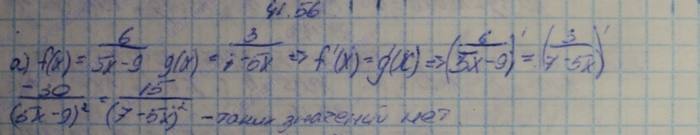 41.56
а) f(x) = 6/(5x-9) g(x) = 3/(7-5x) ⇒ f'(x) = g'(x) ⇒ (6/(5x-9))' = (3/(7-5x))'
-30/(5x-9)² = 15/(7-5x)² - таких значений нет